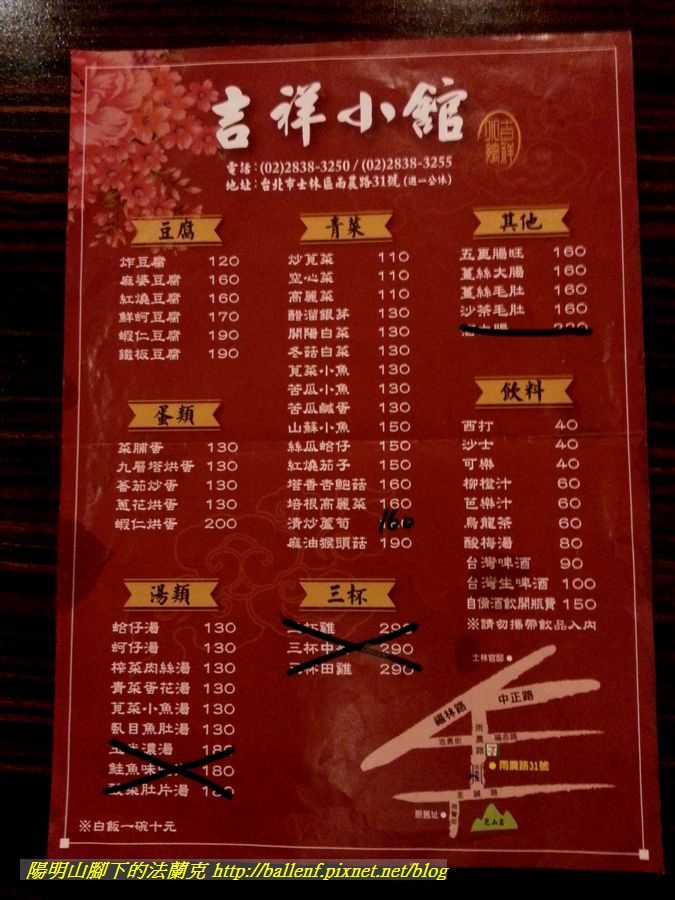 吉祥小館
吉祥
電話：(02)2838-3250 / (02)2838-3255
地址：台北市士林區雨農路31號 (週一公休)
豆腐
炸豆腐 120
麻婆豆腐 160
紅燒豆腐 160
鮮蚵豆腐 170
蝦仁豆腐 190
鐵板豆腐 190
蛋類
菜脯蛋 130
九層塔烘蛋 130
蕃茄炒蛋 130
蔥花烘蛋 130
蝦仁烘蛋 200
湯類
蛤仔湯 130
蚵仔湯 130
榨菜肉絲湯 130
青菜蛋花湯 130
莧菜小魚湯 130
虱目魚肚湯 130
玉米濃湯 180
鮭魚味噌湯 180
酸菜肚片湯 180
※白飯一碗十元
青菜
炒莧菜 110
空心菜 110
高麗菜 110
醋溜銀芽 130
開陽白菜 130
冬菇白菜 130
莧菜小魚 130
苦瓜小魚 130
苦瓜鹹蛋 130
山蘇小魚 150
絲瓜蛤仔 150
紅燒茄子 150
塔香杏鮑菇 160
培根高麗菜 160
清炒蘆筍 160
麻油猴頭菇 190
三杯
三杯雞 290
三杯中卷 290
三杯田雞 290
其他
五更腸旺 160
薑絲大腸 160
薑絲毛肚 160
沙茶毛肚 160
大腸 220
飲料
西打 40
沙士 40
可樂 40
柳橙汁 60
芭樂汁 60
烏龍茶 60
酸梅湯 80
台灣啤酒 90
台灣生啤酒 100
自備酒飲開瓶費 150
※請勿攜帶飲品入內
士林官邸
福林路
中正路
忠勇街
雨農路
福志路
7
雨農路31號
至誠路
原舊址
雨聲街
芝山岩
陽明山腳下的法蘭克 http://ballenf.pixnet.net/blog